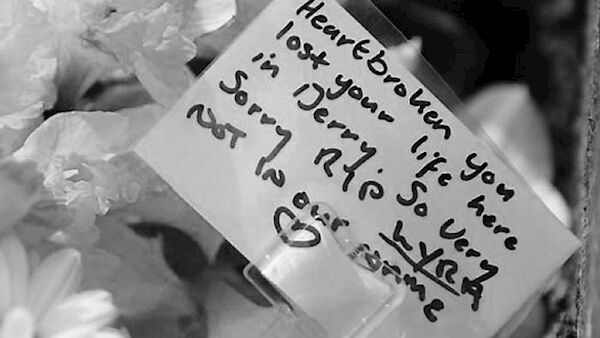 Heartbroken you
lost your life here
in Derry. So very
Sorry RIP LYRA
Not In our name